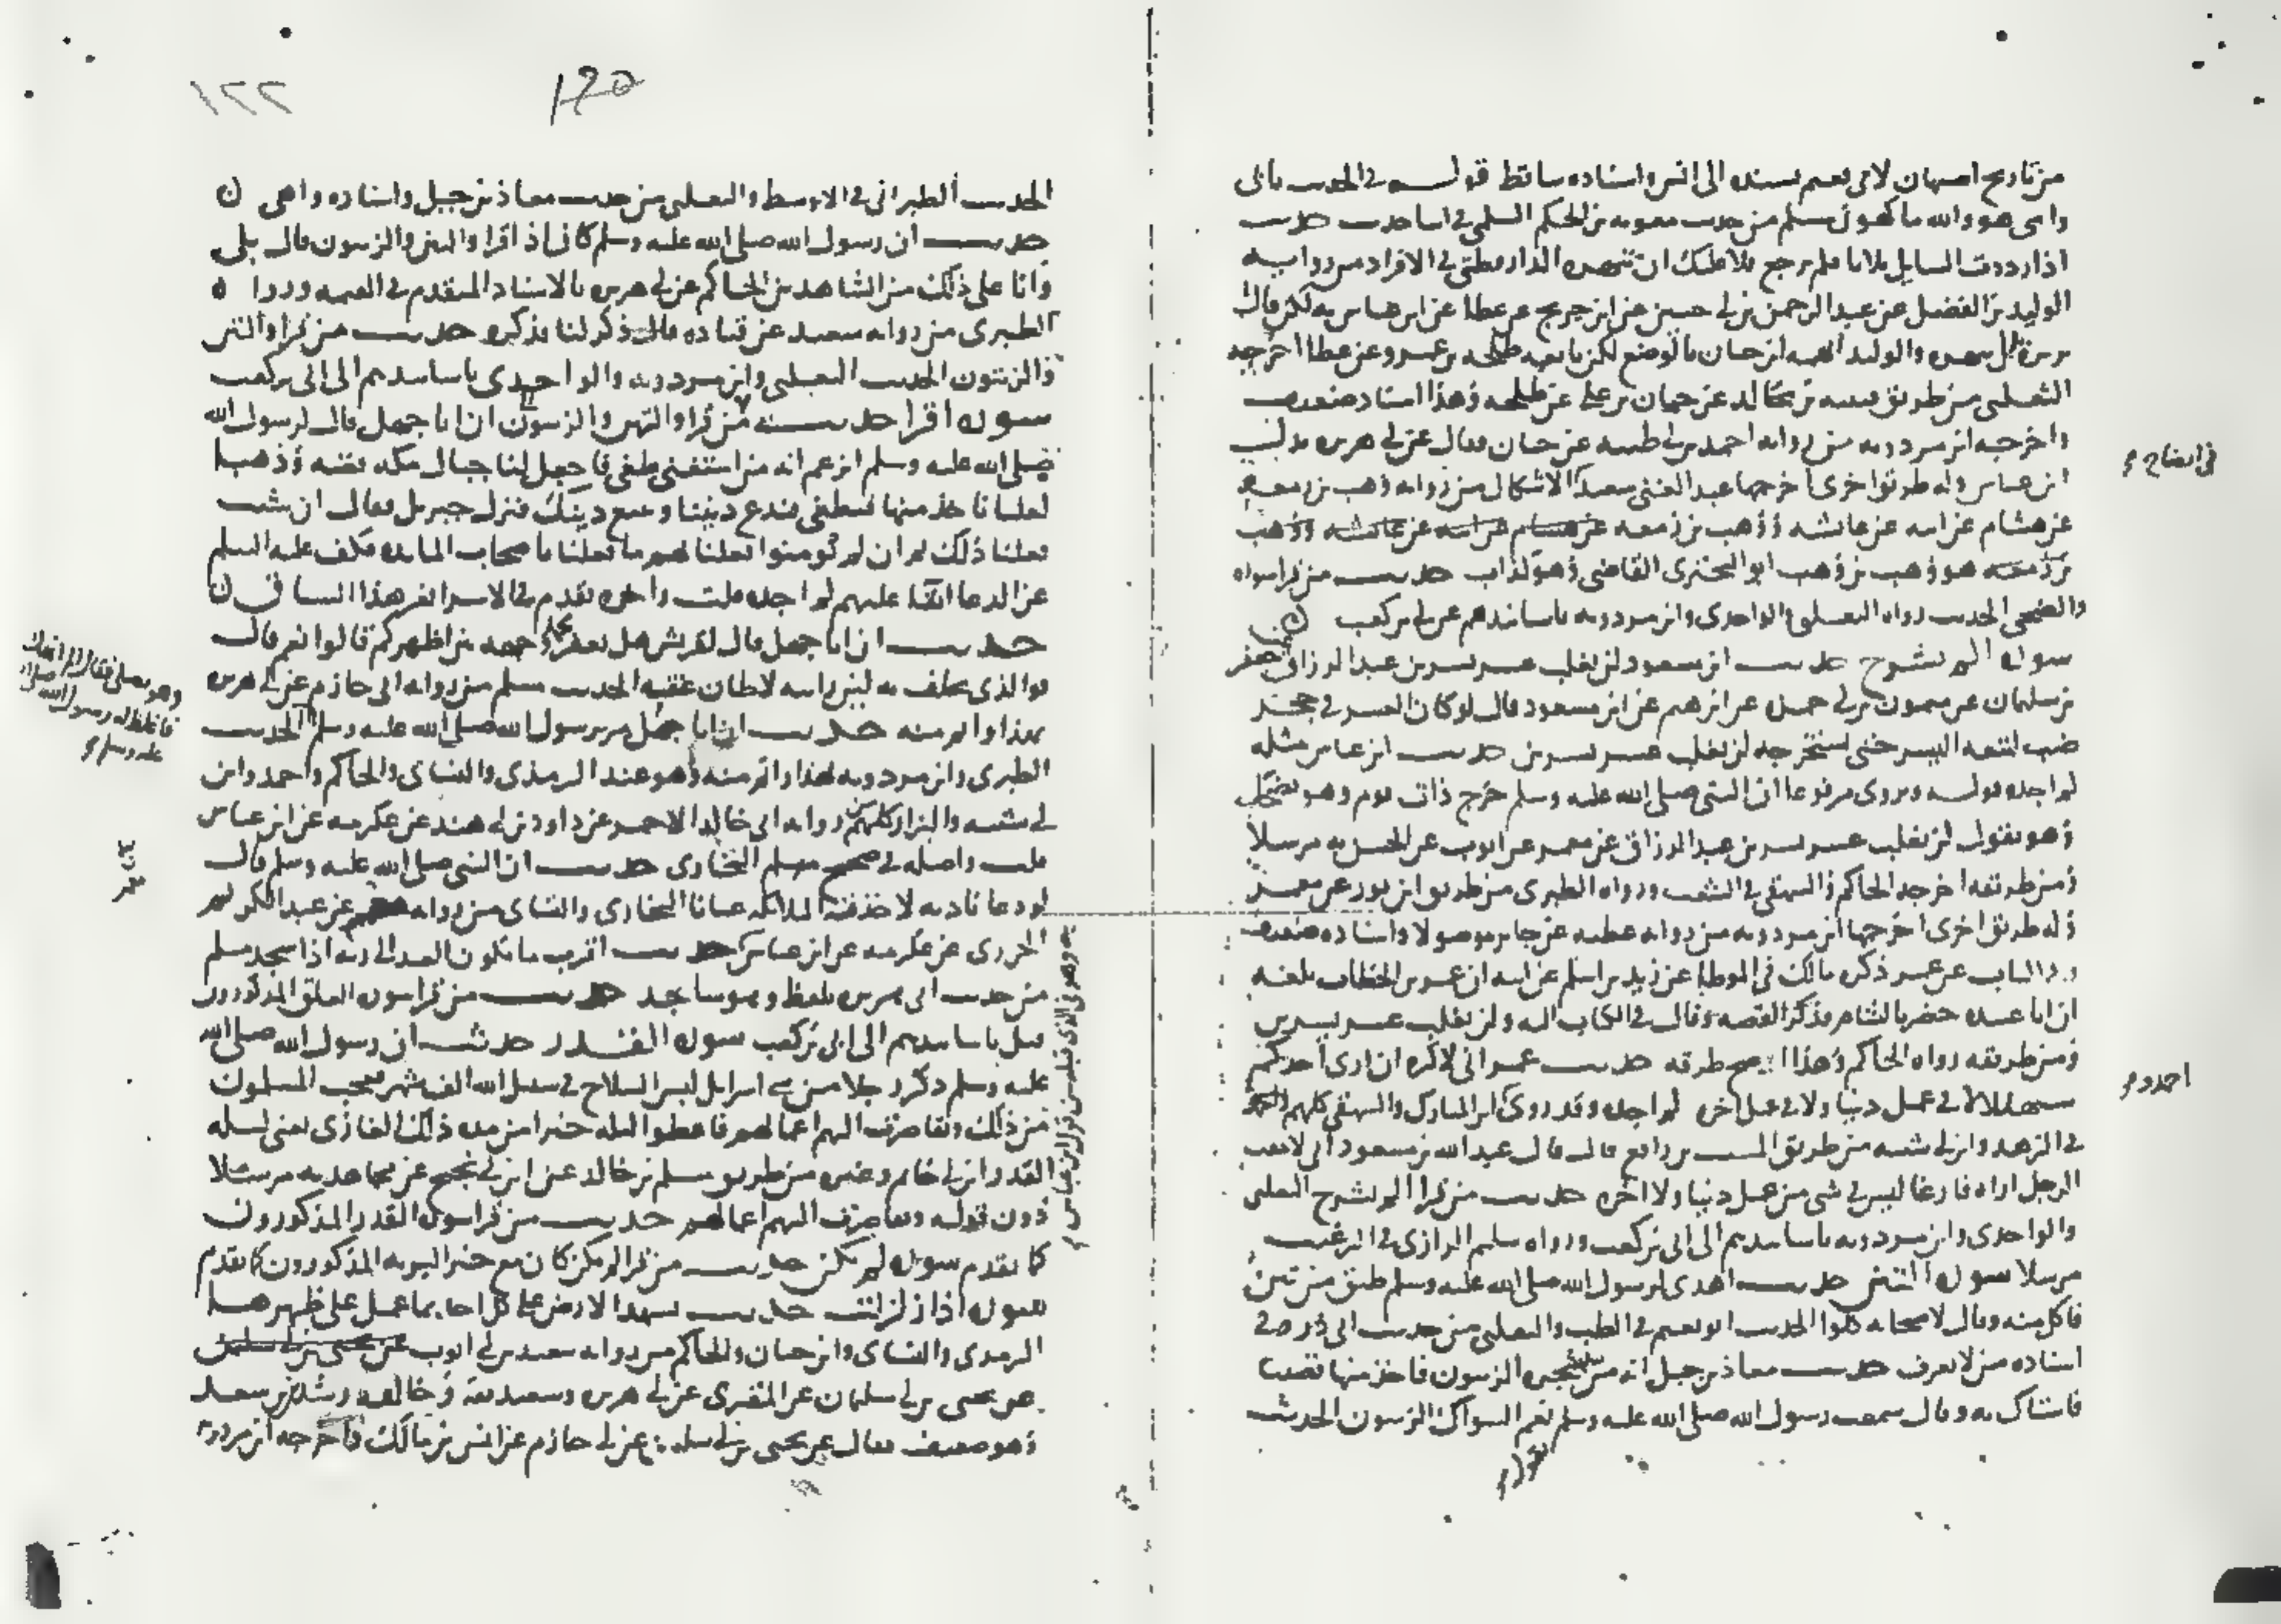 من تاريخ اصبهان لابي نعيم بسنده الى انس واسناده ساقط قوله في الحديث بابي
وامي هو والله ما كهرني مسلم من حديث معويه بن الحكم السلمي في اثنا حديث حديث
اذا رددت السايل ثلاثا فلم يرجع فلا عليك ان تنهره الدارقطني في الافراد من روايه
الوليد بن الفضل عن عبد الرحمن بن ابي حسين عن ابن جريج عن عطا عن ابن عباس به لكن قال
والوليد اتهمه ابن حبان بالوضع لكن تابعه طلحه بن عمرو عن عطا اخرجه
الثعلبي من طريق عن حبان بن علي عن طلحه وهذا اسناد ضعيف
واخرجه ابن مردويه من روايه احمد بن ابي طيبه عن حبان فقال عن ابي هريره بدل
ابن عباس وله طريق اخرى اخرجها عبد الغني بن سعيد الاشكال من روايه وهب بن زمعه
عن هشام عن ابيه عن عائشه ووهب بن زمعه عن هشام عن ابيه عن عائشه ووهب
بن زمعه هو وهب بن وهب ابو البختري القاضي وهو كذاب حديث من قرا سوره
والضحى الحديث رواه الثعلبي والواحدي وابن مردويه باسانيدهم عن ابي بن كعب
سوره الم نشرح حديث ابن مسعود لن يغلب عسر يسرين عبد الرزاق عن جعفر
بن سليمان عن ميمون بن ابي حمزه عن ابراهيم عن ابن مسعود قال لو كان العسر في جحر
ضب لتبعه اليسر حتى يستخرجه لن يغلب عسر يسرين حديث ابن عباس مثله
لم اجده قوله وروى مرفوعا ان النبي صلى الله عليه وسلم خرج ذات يوم وهو يضحك
وهو يقول لن يغلب عسر يسرين عبد الرزاق عن معمر عن ايوب عن الحسن به مرسلا
ومن طريقه اخرجه الحاكم والبيهقي في الشعب ورواه الطبري من طريق ابن ثور عن معمر
وله طريق اخرى اخرجها ابن مردويه من روايه عطيه عن جابر موصولا واسناده ضعيف
وفي الباب عن عمر ذكره مالك في الموطا عن زيد بن اسلم عن ابيه ان عمر بن الخطاب بلغه
ان ابا عبيده حضر بالشام فذكر القصه وقال في الكتاب اليه ولن يغلب عسر يسرين
ومن طريقه رواه الحاكم وهذا اصح طرقه حديث عمر اني لاكره ان ارى احدكم
سبهللا لا في عمل دنيا ولا في عمل اخره لم اجده وقد روى ابن المبارك والبيهقي كلهم
في الزهد وابن ابي شيبه من طريق المسيب بن رافع قال قال عبد الله بن مسعود اني لامقت
الرجل اراه فارغا ليس في شي من عمل دنيا ولا اخره حديث من قرا الم نشرح الثعلبي
والواحدي وابن مردويه باسانيدهم الى ابي بن كعب ورواه سليم الرازي في الترغيب
مرسلا سوره التين حديث اهدي لرسول الله صلى الله عليه وسلم طبق من تين
فاكل منه وقال لاصحابه كلوا الحديث ابو نعيم في الطب والثعلبي من حديث ابي ذر وفي
اسناده من لا يعرف حديث معاذ بن جبل انه مر بشجره الزيتون فاخذ منها قضيبا
فاستاك به وقال سمعت رسول الله صلى الله عليه وسلم نعم السواك الزيتون الحديث
احمد و
١٢٢
١٢٥
الحديث الطبراني في الاوسط والثعلبي من حديث معاذ بن جبل واسناده واهي
حديث ان رسول الله صلى الله عليه وسلم كان اذا قرا والتين والزيتون قال بلى
وانا على ذلك من الشاهدين الحاكم عن ابي هريره بالاسناد المتقدم في القيمه وروا
الطبري من روايه سعيد عن قتاده قال ذكر لنا بذكره حديث من قرا والتين
والزيتون الحديث الثعلبي وابن مردويه والواحدي باسانيدهم الى ابي بن كعب
سوره اقرا حديث من قرا والتين والزيتون ان ابا جهل قال لرسول الله
صلى الله عليه وسلم اتزعم انه من استغنى طغى فاجعل لنا جبال مكه فضه وذهبا
لعلنا ناخذ منها فنطغى فندع ديننا ونتبع دينك فنزل جبريل فقال ان شئت
فعلنا ذلك ثم ان لم يؤمنوا فعلنا بهم ما فعلنا باصحاب المائده فكف عليه السلم
عن الدعا ابقا عليهم لم اجده قلت واخره تقدم في الاسرا بغير هذا السياق
حديث ان ابا جهل قال لقريش هل يعفر محمد وجهه بين اظهركم قالوا نعم قال
فوالذي يحلف به لئن رايته لاطان عنقه الحديث مسلم من روايه ابي حازم عن ابي هريره
بهذا واتم منه حديث ان ابا جهل مر برسول الله صلى الله عليه وسلم الحديث
الطبري وابن مردويه بهذا واتم منه وهو عند الترمذي والنساي والحاكم واحمد وابن
ابي شيبه والبزار كلهم من روايه ابي خالد الاحمر عن داود بن ابي هند عن عكرمه عن ابن عباس
قلت واصله في صحيح البخاري حديث ان النبي صلى الله عليه وسلم قال
لو دعا ناديه لاخذته الملائكه عيانا البخاري والنساي من روايه عن عبد الكريم
الجزري عن عكرمه عن ابن عباس حديث اقرب ما يكون العبد الى ربه اذا سجد مسلم
من حديث ابي هريره بلفظ وهو ساجد حديث من قرا سوره العلق المذكورون
قبل باسانيدهم الى ابي بن كعب سوره القدر حديث ان رسول الله صلى الله
عليه وسلم ذكر رجلا من بني اسرايل لبس السلاح في سبيل الله الف شهر فعجب المسلمون
من ذلك وتقاصرت اليهم اعمالهم فاعطوا ليله خيرا من مده ذلك الغازي يعني ليله
القدر ابن ابي حاتم وغيره من طريق مسلم بن خالد عن ابن ابي نجيح عن مجاهد به مرسلا
دون قوله وتقاصرت اليهم اعمالهم حديث من قرا سوره القدر المذكورون
كما تقدم سوره لم يكن حديث من قرا لم يكن كان مع خير البريه المذكورون كما تقدم
سوره اذا زلزلت حديث تشهد الارض على كل احد بما عمل على ظهرها
الترمذي والنساي وابن حبان والحاكم من روايه سعيد بن ابي ايوب عن يحيى بن ابي سليمان
عن يحيى بن ابي سليمان عن المقبري عن ابي هريره وسعيد ثقه وخالفه رشدين بن سعد
وهو ضعيف فقال عن يحيى بن ابي سليمان عن ابي حازم عن انس بن مالك واخرجه ابن مردويه
وهو يصلي فقال الم انهك
فاغلظ له رسول الله صلى الله
عليه وسلم